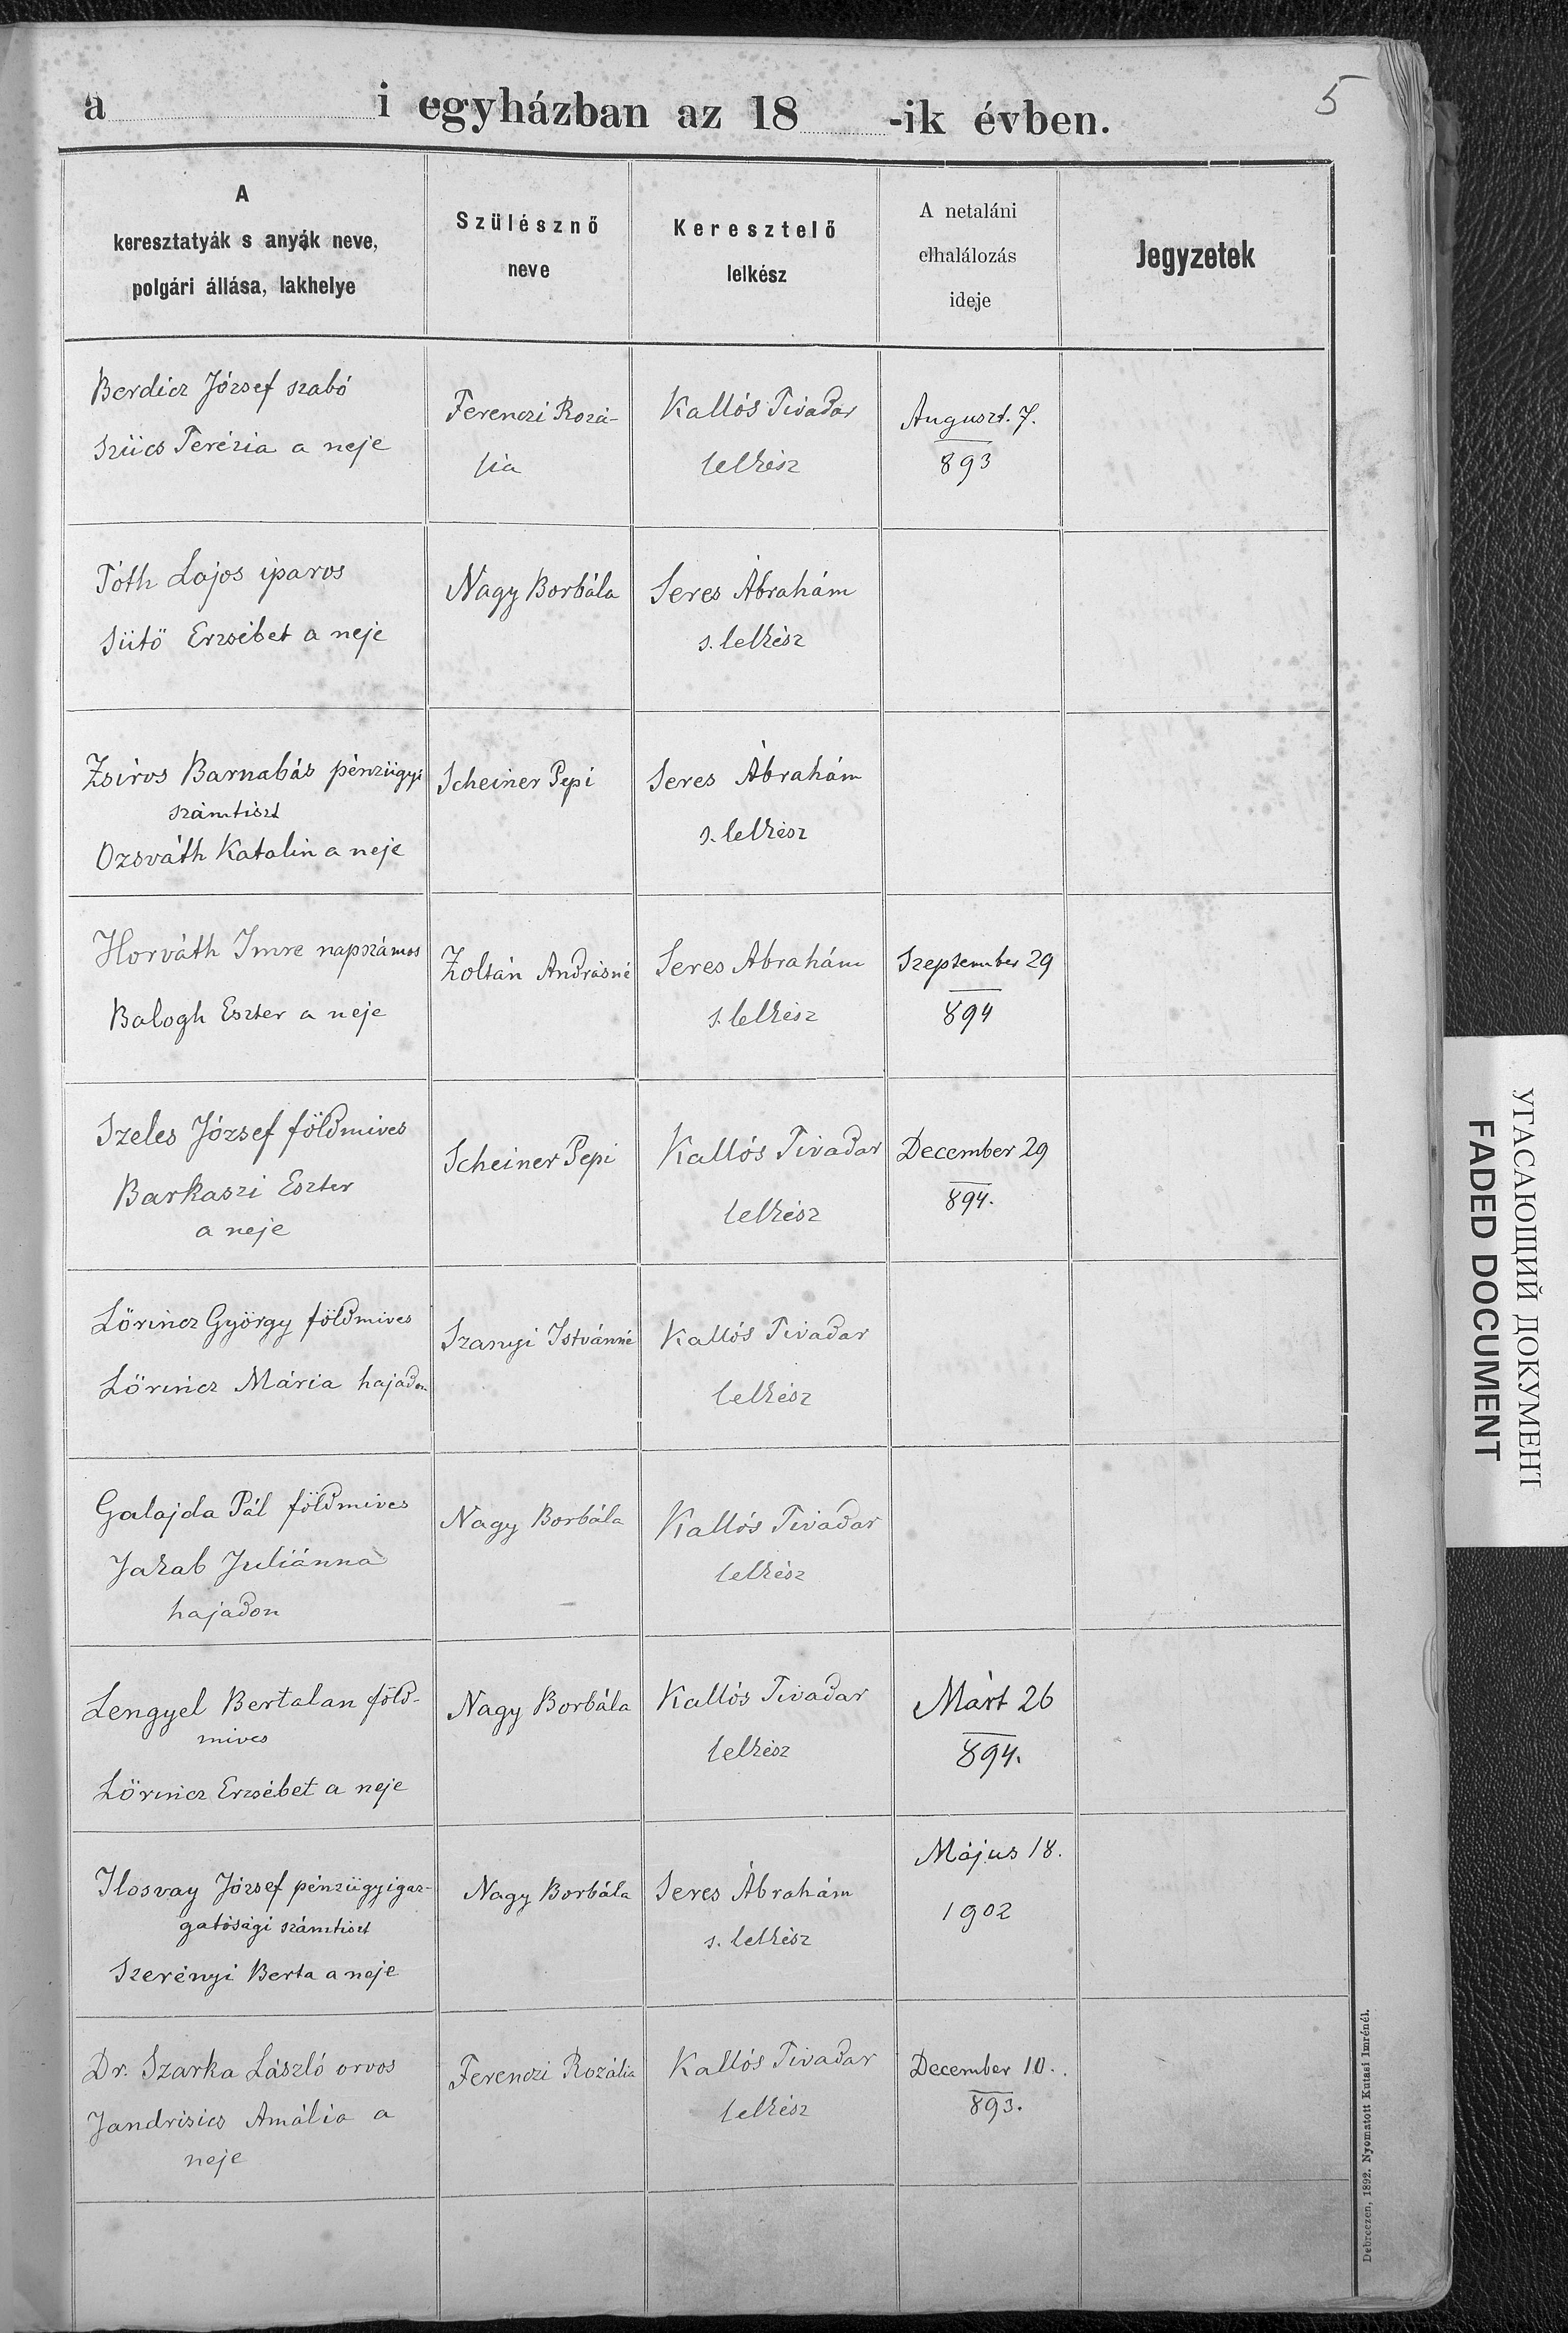 5
a i egyházban az 18 -ik évben.
A
keresztatyák s anyák neve,
polgári állása, lakhelye
Szülésznő
neve
Keresztelő
lelkész
A netaláni
elhalálozás
ideje
Jegyzetek
Berdicz József szabó
Szücs Terézia a neje
Ferenczi Rozá-
lia
Kallós Tivadar
lelkész
Auguszt. 7.
893
Tóth Lajos iparos
Sütö Erzsébet a neje
Nagy Borbála
Seres Ábrahám
s. lelkész
Zsíros Barnabás pénzügyi
számtiszt
Ozsváth Katalin a neje
Scheiner Pepi
Seres Ábrahám
s. lelkész
Horváth Imre napszámos
Balogh Eszter a neje
Zoltán Andrásné
Seres Abrahám
s. lelkész
Szeptember 29
894
Szeles József földmives
Barkaszi Eszter
a neje
Scheiner Pepi
Kallós Tivadar
lelkész
December 29
894.
Lörincz György földmives
Lörincz Mária hajadon
Szanyi Istvánné
Kallós Tivadar
lelkész
Galajda Pál földmives
Jakab Juliánna
hajadon
Nagy Borbála
Kallós Tivadar
lelkész
Lengyel Bertalan föld-
mives
Lörincz Erzsébet a neje
Nagy Borbála
Kallós Tivadar
lelkész
Márt 26
894.
Ilosvay József pénzügyigaz-
gatósági számtiszt
Szerényi Berta a neje
Nagy Borbála
Seres Ábrahám
s. lelkész
Május 18.
1902
Dr. Szarka László orvos
Jandrisics Amália a
neje
Ferenczi Rozália
Kallós Tivadar
lelkész
December 10.
893.
Debreczen, 1892. Nyomatott Kutasi Imrénél.
УГАСАЮЩИЙ ДОКУМЕНТ
FADED DOCUMENT